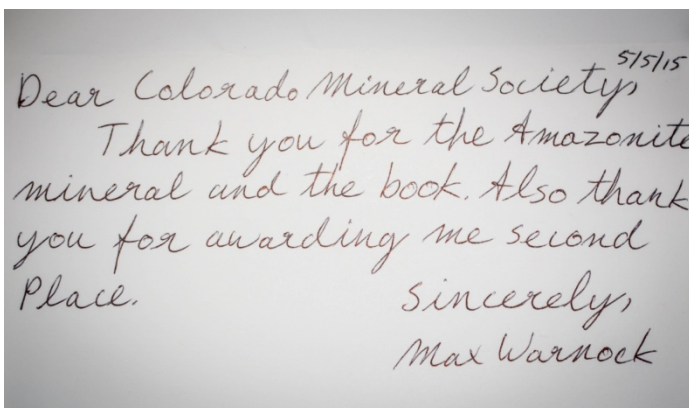 5/5/15
Dear Colorado Mineral Society,
Thank you for the Amazonite
mineral and the book. Also thank
you for awarding me second
Place.
Sincerely,
Max Warnock